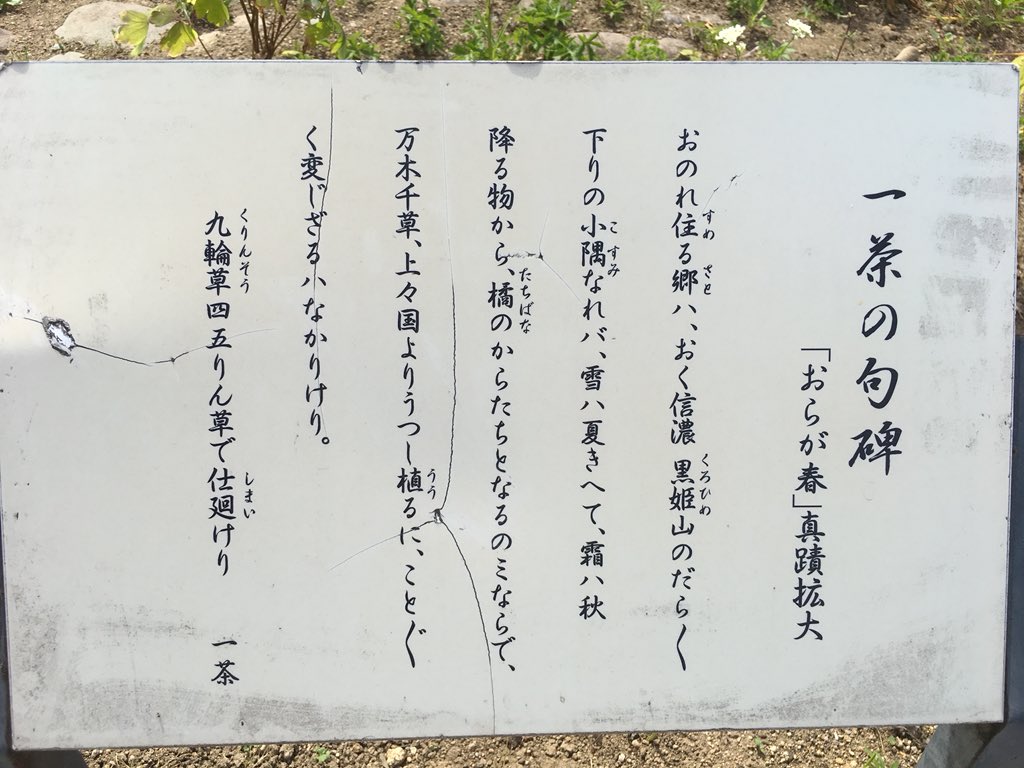 一茶の句碑
「おらが春」真蹟拡大
おのれ住る郷ハ、おく信濃黒姫山のだら〱
下りの小隅なれバ、雪ハ夏きへて、霜ハ秋
降る物から、橘のからたちとなるのミならで、
万木千草、上々国よりうつし植るに、こと〴〵
く変じざるハなかりけり。
九輪草四五りん草で仕廻けり　一茶
すめ
さと
くろひめ
こすみ
たちばな
うう
くりんそう
しまい